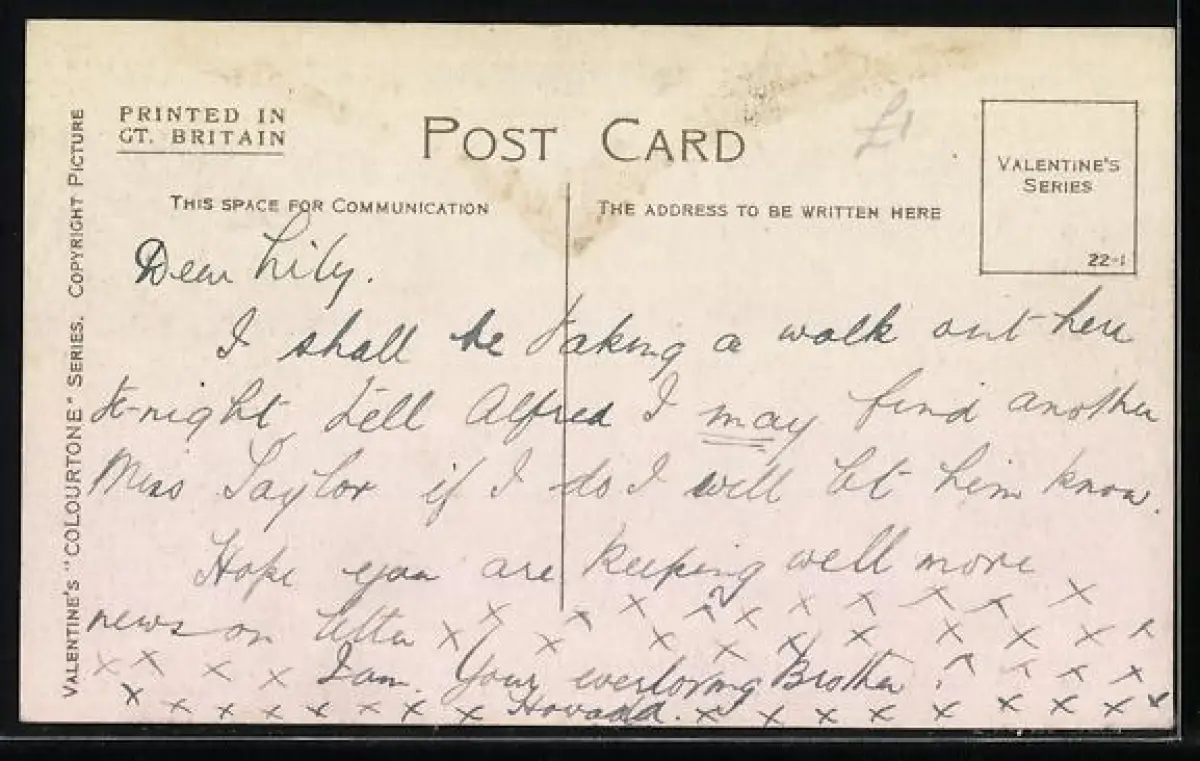 PRINTED IN
GT. BRITAIN
POST CARD
£1
VALENTINE'S
SERIES
22-1
THIS SPACE FOR COMMUNICATION
THE ADDRESS TO BE WRITTEN HERE
VALENTINE'S "COLOURTONE" SERIES. COPYRIGHT PICTURE
Dear Lily.
I shall be taking a walk out here
to-night, tell Alfred I may find another
Miss Taylor if I do I will let him know.
Hope you are keeping well more
news on letter x x x x x x x x x x x x x x x x x x x x x
x x x x I am. Your everloving Brother. x x x x x
x x x x x x x Howard. x x x x x x x x x